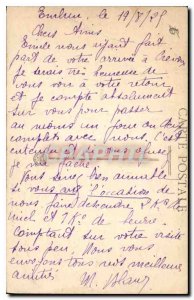 Embrun le 19/8/35
Chers Amis
Emile nous ayant fait
part de votre arrivée à Crévoux
Je serais très heureuse de
vous voir à votre retour
et je compte absolument
sur vous pour passer
au moins un jour ou deux
complets avec nous. C'est
entendu
je me fâche!
Vous serez bien aimable
si vous avez l'occasion de
nous faire descendre
et 1 K° de beurre.
Comptant sur votre visite
sous peu. Nous vous
envoyons tous nos meilleures
amitiés
M.
CARTE POSTALE